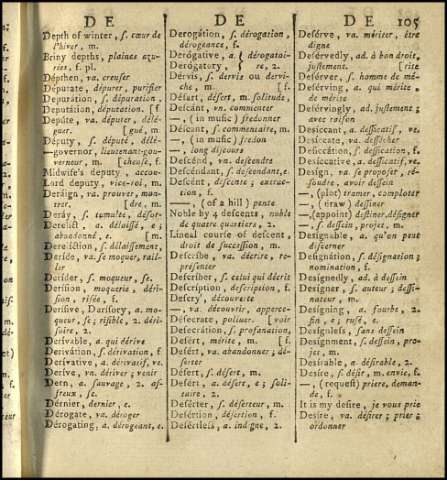 D E
D E
D E 105
Depth of winter, ſ. cœur de
l'hiver, m.
Briny depths, plaines azu-
rées, f. pl.
Dépthen, va. creuſer
Dépurate, dépurer, purifier
Depuration, ſ. dépuration,
Deputátion, députation, [f.
Depúte, va. députer, délé-
guer. [gué, m.
Députy, ſ. député, délé-
—governor, lieutenant-gou-
verneur, m. [cheuſe, f.
Midwife's deputy, accou-
Lord deputy, vice-roi, m.
Deráign, va. prouver, mon-
trer, [dre, m.
Deráy, ſ. tumulte, déſor-
Derelíct, a. délaiſſé, e ;
abandonné, e. [m.
Dereliction, ſ. délaiſſement,
Deríde, va. ſe moquer, rail-
ler
Derider, ſ. moqueur, ſe.
Deríſion, moquerie, déri-
ſion, riſée, f.
Deríſive, Deríſory, a. mo-
queur, ſe ; riſible, 2. déri-
ſoire, 2.
Derívable, a. qui dérive
Derivátion, ſ. dérivation, f
Derivative, a. dérivatif, ve.
Deríve, vn. dériver ; venir
Dern, a. ſauvage, 2. af-
freux, ſe.
Dérnier, dernier, e.
Dérogate, va. déroger
Dérogating, a. dérogeant, e.
Derogátion, ſ. dérogation,
dérogeance, f.
Derógative, a. dérogatoi-
Derógatory, re, 2.
Dérvis, ſ. dervis ou dervi-
che, m. [f.
Déſart, déſert, m. ſolitude,
Deſcánt, vn. commenter
—, (in muſic) fredonner
Déſcant, ſ. commentaire, m.
—, (in muſic) fredon
—, long diſcours
Deſcénd, va. deſcendre
Deſcéndant, ſ. deſcendant, e.
Deſcént, deſcente ; extrac-
tion, f.
—, (of a hill) pente
Noble by 4 deſcents, noble
de quatre quartiers, 2.
Lineal courſe of deſcent,
droit de ſucceſſion, m.
Deſcríbe, va. décrire, re-
préſenter
Deſcríber, ſ. celui qui décrit
Deſcríption, deſcription, f.
Deſcrý, découverte
—, va. découvrir, apperce-
Déſecrate, polluer. [voir
Deſecrátion, ſ. profanation,
Deſért, mérite, m. [f.
Deſért, va. abandonner ; dé-
ſerter
Déſert, ſ. déſert, m.
Déſert, a. déſert, e ; ſoli-
taire, 2.
Deſérter, ſ. déſerteur, m.
Deſértion, déſertion, f.
Deſértleſs, a. indigne, 2.
Deſérve, va. mériter, être
digne
Deſérvedly, ad. à bon droit,
juſtement. [rite
Deſérver, ſ. homme de mé-
Deſérving, a. qui mérite,
de mérite
Deſérvingly, ad. juſtement ;
avec raiſon
Deſíccant, a. deſſicatif, ve.
Deſíccate, va. deſſécher
Deſiccátion, ſ. deſſication, f.
Deſíccative, a. deſſicatif, ve.
Deſígn, va. ſe propoſer, ré-
ſoudre, avoir deſſein
—, (plot) tramer, comploter
—, (draw) deſſiner
—, (appoint) deſtiner, déſigner
—, ſ. deſſein, projet, m.
Deſígnable, a. qu'on peut
diſcerner
Deſignátion, ſ. déſignation ;
nomination, f.
Deſígnedly, ad. à deſſein
Deſígner, ſ. auteur ; deſſi-
nateur, m.
Deſígning, a. fourbe, 2.
fin, e ; ruſé, e.
Deſígnleſs, ſans deſſein
Deſígnment, ſ. deſſein, pro-
jet, m.
Deſírable, a. déſirable, 2.
Deſíre, ſ. déſir, m. envie, f.
—, (requeſt) priere, deman-
de, f.
It is my deſire, je vous prie
Deſíre, va. déſirer ; prier ;
ordonner